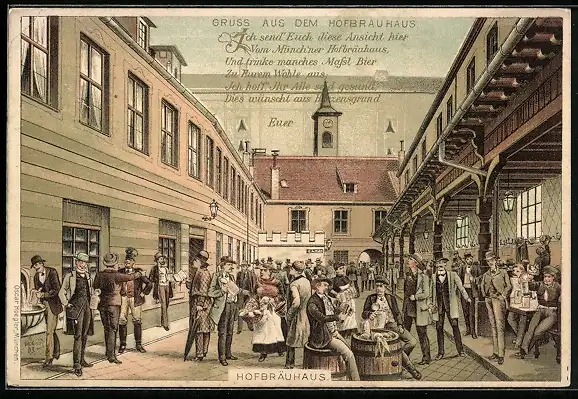 GRUSS AUS DEM HOFBRÄUHAUS
Ich send' Euch diese Ansicht hier
Vom Münch'ner Hofbräuhaus,
Und trinke manches Maßl Bier
Zu Eurem Wohle aus
Ich hoff' Ihr Alle seid gesund,
Dies wünscht aus Herzensgrund
Euer
HOFBRÄUHAUS